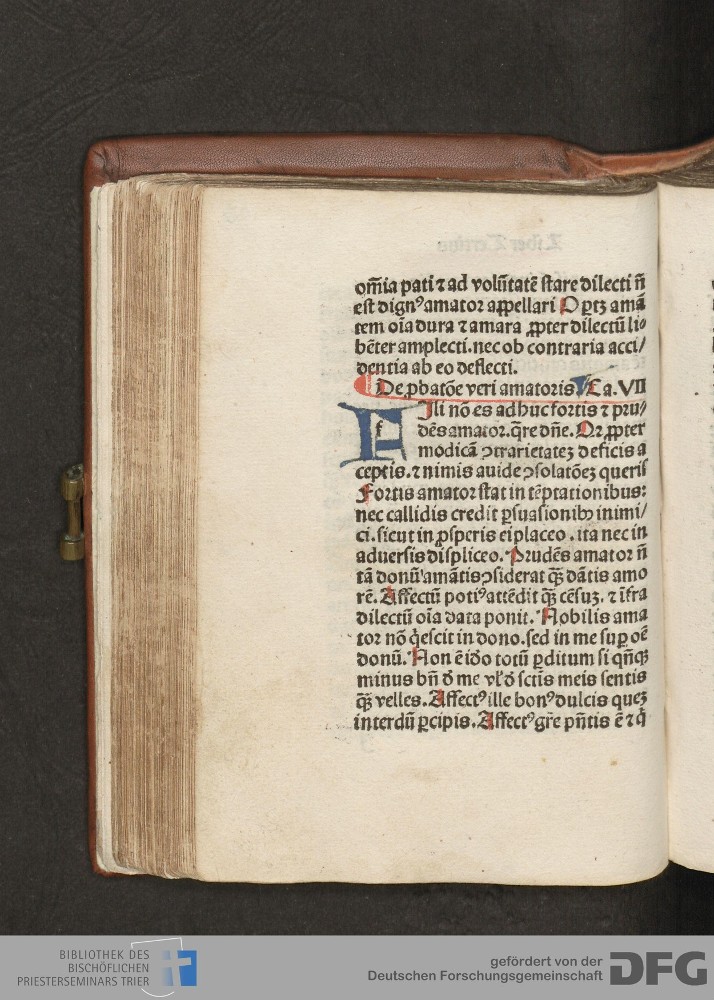 om̃ia pati ⁊ ad volũtatẽ stare dilecti ñ
est dign⁹ amator appellari Oportꝫ amã
tem oĩa dura ⁊ amara ꝓpter dilectũ li⸗
bẽter amplecti. nec ob contraria acci/
dentia ab eo deflecti.
De ꝓbatõe veri amatoris Ca. VII
FIli nõ es adhuc fortis ⁊ pru/
dẽs amator. q̃re dñe. Qꝛ ꝓpter
modicã ꝯtrarietateꝫ deficis a
ceptis. ⁊ nimis auide ꝯsolatõeꝫ queris
Fortis amator stat in tẽptationibus:
nec callidis credit ꝑsuasionibꝫ inimi/
ci. sicut in ꝓsperis ei placeo. ita nec in
aduersis displiceo. Prudẽs amator ñ
tã donũ amãtis ꝯsiderat q̃ꝫ dãtis amo
rẽ. Affectũ poti⁹ attẽdit q̃ꝫ cẽsuꝫ. ⁊ ĩfra
dilectũ oĩa data ponit. Nobilis ama
tor nõ q̇escit in dono. sed in me suꝑ oẽ
donũ. Non ẽ iđo totũ ꝑditum si qñqꝫ
minus bñ đ me vl̓ đ sctis meis sentis
q̃ꝫ velles. Affect⁹ ille bon⁹ dulcis queꝫ
interdũ ꝑcipis. Affect⁹ gr̃e pñtis ẽ ⁊ q̇
Liber Tertius
BIBLIOTHEK DES
BISCHÖFLICHEN
PRIESTERSEMINARS TRIER
gefördert von der
Deutschen Forschungsgemeinschaft
DFG